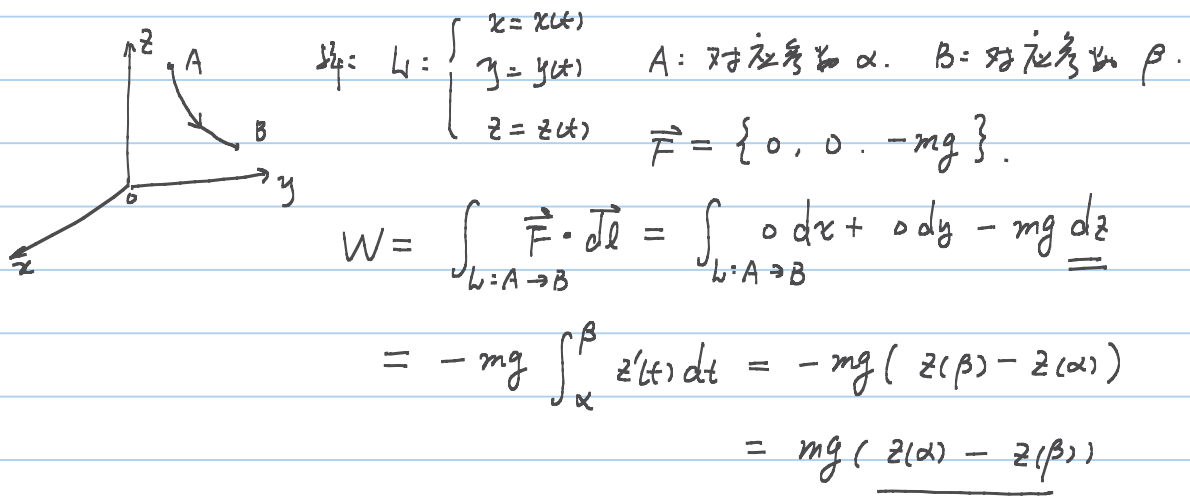 z
A
B
o
y
x
解: L: { x = x(t) y = y(t) z = z(t)
A: 对应参数 α. B: 对应参数 β.
F⃗ = {0, 0. -mg}.
W = ∫_{L:A→B} F⃗ · dl⃗ = ∫_{L:A→B} 0 dx + 0 dy - mg dz
= - mg ∫_α^β z'(t) dt = - mg ( z(β) - z(α) )
= mg ( z(α) - z(β) )